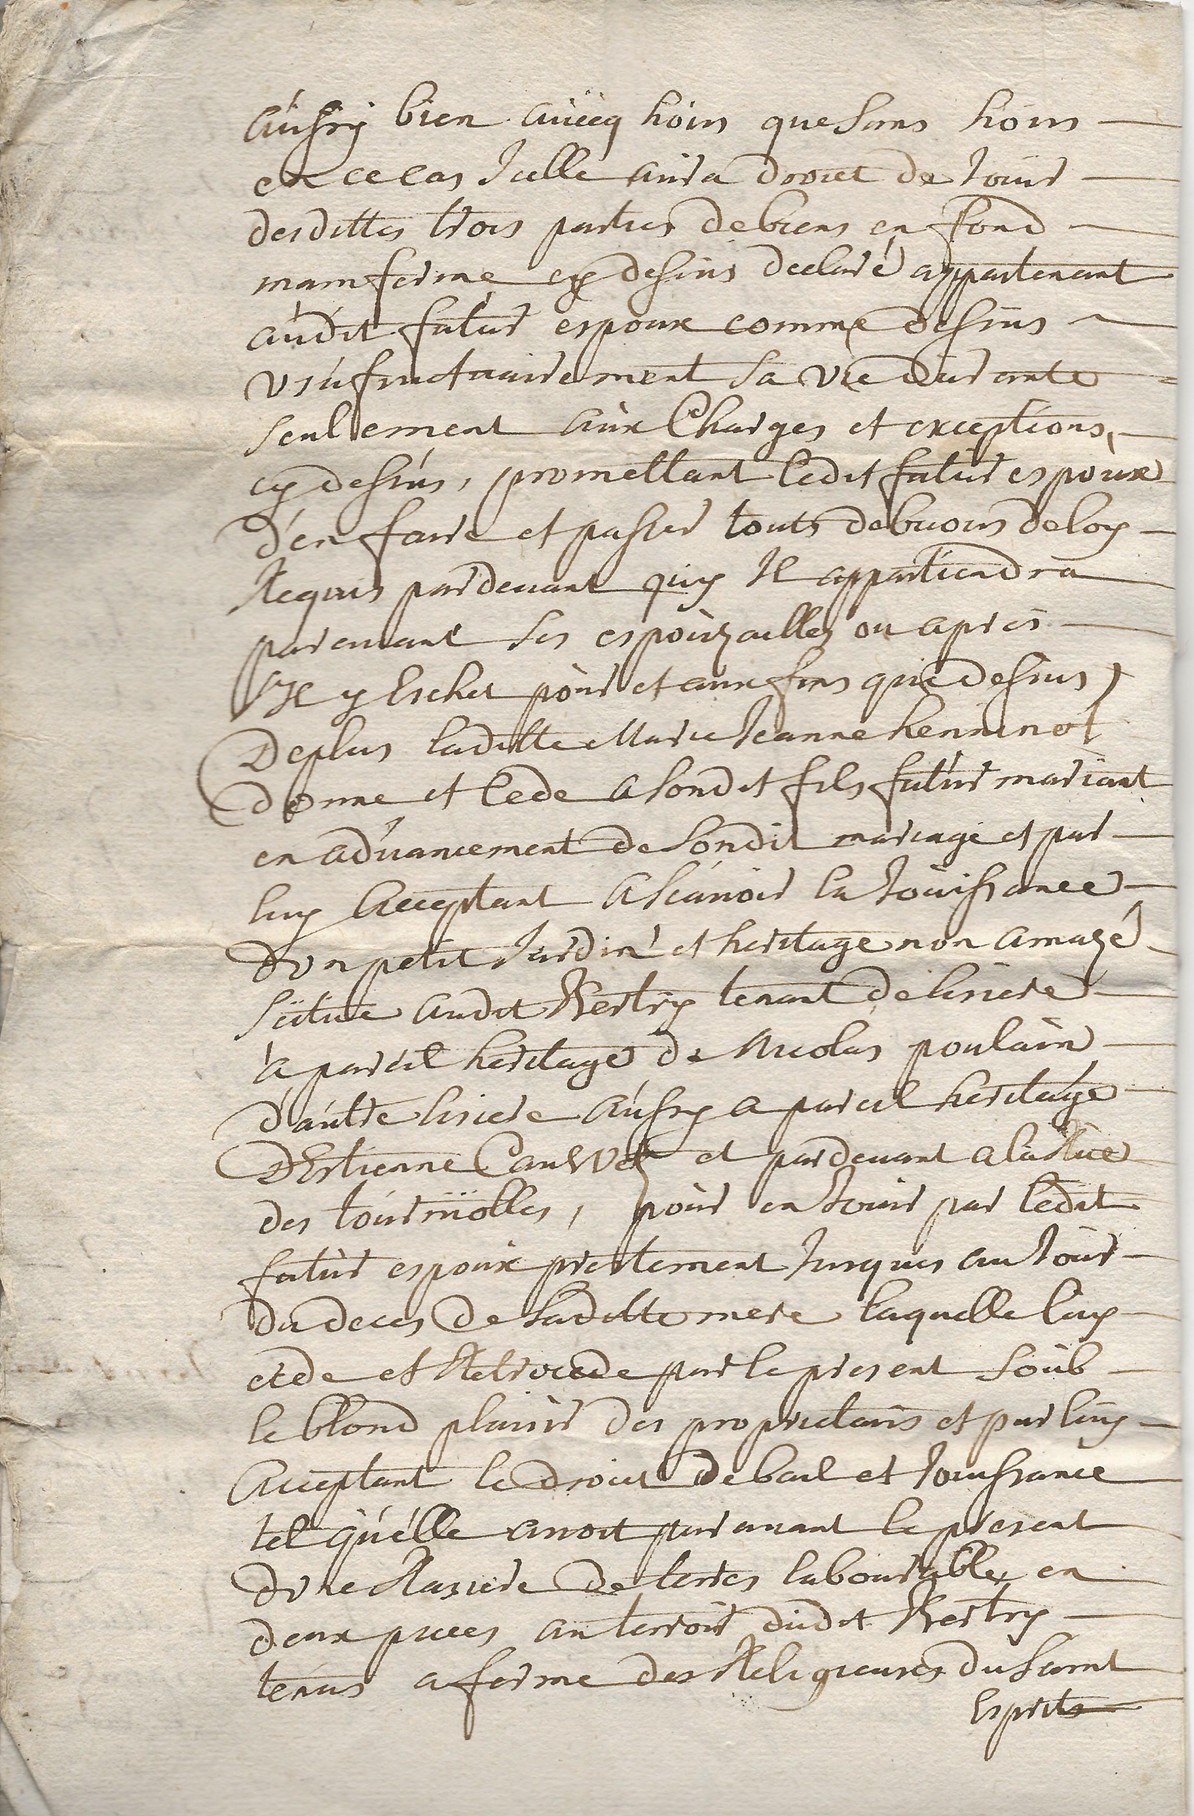 aussy bien avecq hoirs que sans hoirs
en ce cas Icelle aura droict de Jouir
desdittes trois parties de biens en fond
mainferme cy dessus declaré appartenant
audit futur espoux comme dessus
usufructuairement sa vie durante
seullement aux Charges et exceptions,
cy dessus, promettant ledit futur espoux
d'en faire et passer touts debuoirs de loy
Requis pardevant quy Il appartiendra
paravant ses espouzailles ou apres
s'Il y Eschet pour et aux fins que dessus,
De plus laditte Marie Jeanne henninot
donne et Cede a sondit fils futur mariant
en advancement de sondit mariage et par
luy Acceptant Ascavoir la Jouissance
d'un petit Jardin et heritage non amazé
scitué audit tenant de lisiere
a pareil heritage de Nicolas poulain
d'autre lisiere aussy a pareil heritage
D'Estienne et pardevant a la Rue
des pour en Jouir par ledit
futur espoux prestement Jusques au Jour
du deces de saditte mere laquelle luy
cede et Retrocede par le present soub
le blond plaisir des proprietairs et par luy
Acceptant le droict de bail et Jouissance
tel qu'elle avoit paravant le present
d'une Rasiere de terres labourables en
deux pieces au terroir dudit
tenus a ferme des Religieuses du Saint
Esprits